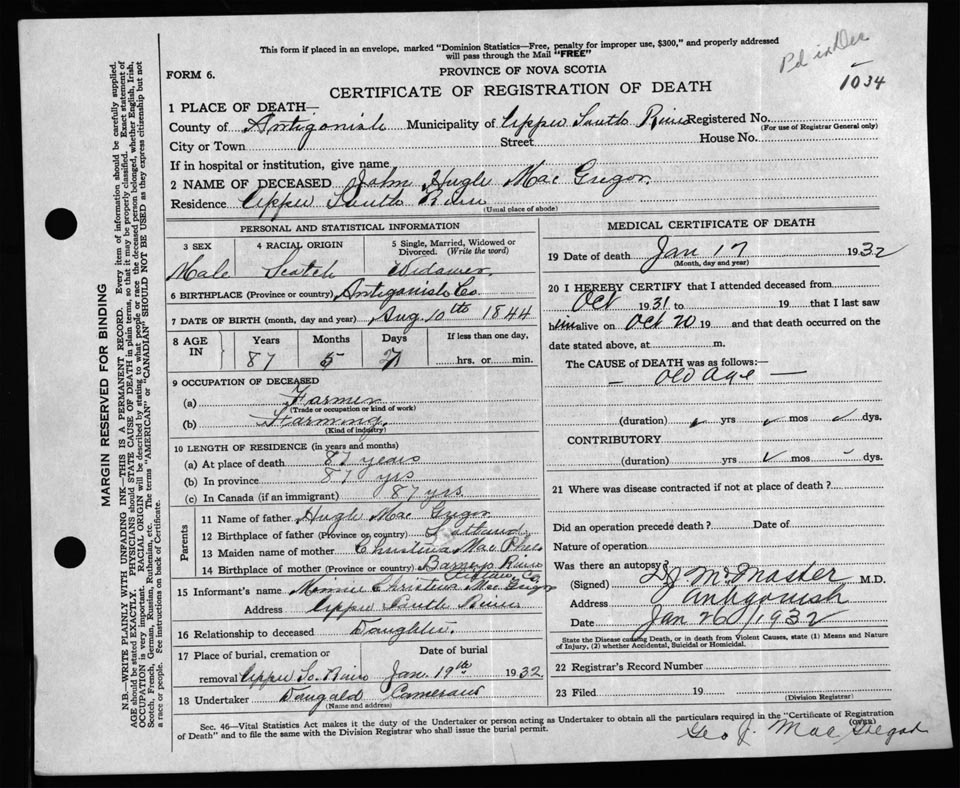 This form if placed in an envelope, marked "Dominion Statistics—Free, penalty for improper use, $300," and properly addressed
will pass through the Mail "FREE"
Pd in Dec
1034
FORM 6.
PROVINCE OF NOVA SCOTIA
CERTIFICATE OF REGISTRATION OF DEATH
1 PLACE OF DEATH—
County of Antigonish Municipality of Upper South River Registered No.
(For use of Registrar General only)
City or Town Street House No.
If in hospital or institution, give name
2 NAME OF DECEASED John Hugh MacGregor
Residence Upper South River
(Usual place of abode)
PERSONAL AND STATISTICAL INFORMATION
3 SEX 4 RACIAL ORIGIN 5 Single, Married, Widowed or Divorced. (Write the word)
Male Scotch Widower
6 BIRTHPLACE (Province or country) Antigonish Co
7 DATE OF BIRTH (month, day and year) Aug. 10th 1844
8 AGE IN Years Months Days If less than one day,
87 5 7 hrs. or min.
9 OCCUPATION OF DECEASED
(a) Farmer
(Trade or occupation or kind of work)
(b) Farming.
(Kind of industry)
10 LENGTH OF RESIDENCE (in years and months)
(a) At place of death 87 years
(b) In province 87 yrs
(c) In Canada (if an immigrant) 87 yrs
Parents
11 Name of father Hugh MacGregor
12 Birthplace of father (Province or country) Scotland
13 Maiden name of mother Christina Mac
14 Birthplace of mother (Province or country) Barneys River
Pictou Co
15 Informant's name Minnie Christena MacGregor
Address Upper South River
16 Relationship to deceased Daughter.
17 Place of burial, cremation or Date of burial
removal Upper So. River Jan 19th 1932
18 Undertaker Dougald Cameron
(Name and address)
MEDICAL CERTIFICATE OF DEATH
19 Date of death Jan 17 1932
(Month, day and year)
20 I HEREBY CERTIFY that I attended deceased from
Oct 1931 to 19 that I last saw
him alive on Oct 20 19 and that death occurred on the
date stated above, at m.
The CAUSE of DEATH was as follows:—
— Old Age —
(duration) yrs mos dys.
CONTRIBUTORY
(duration) yrs mos dys.
21 Where was disease contracted if not at place of death?
Did an operation precede death? Date of
Nature of operation
Was there an autopsy
(Signed) McMaster M.D.
Address Antigonish
Date Jan 26/1932
State the Disease causing Death, or in death from Violent Causes, state (1) Means and Nature
of Injury, (2) whether Accidental, Suicidal or Homicidal.
22 Registrar's Record Number
23 Filed 19
(Division Registrar)
Sec. 46—Vital Statistics Act makes it the duty of the Undertaker or person acting as Undertaker to obtain all the particulars required in the "Certificate of Registration
of Death" and to file the same with the Division Registrar who shall issue the burial permit.
(OVER)
Geo J. MacGregor
MARGIN RESERVED FOR BINDING
N.B.—WRITE PLAINLY WITH UNFADING INK—THIS IS A PERMANENT RECORD. Every item of information should be carefully supplied.
AGE should be stated EXACTLY. PHYSICIANS should STATE CAUSE OF DEATH in plain terms, so that it may be properly classified. Exact statement of
OCCUPATION is very important. RACIAL ORIGIN will be described by stating to what people or race the deceased person belonged, whether English, Irish,
Scotch, French, German, Russian, Ruthenian, etc. The terms "AMERICAN" or "CANADIAN" SHOULD NOT BE USED as they express citizenship but not
a race or people. See instructions on back of Certificate.